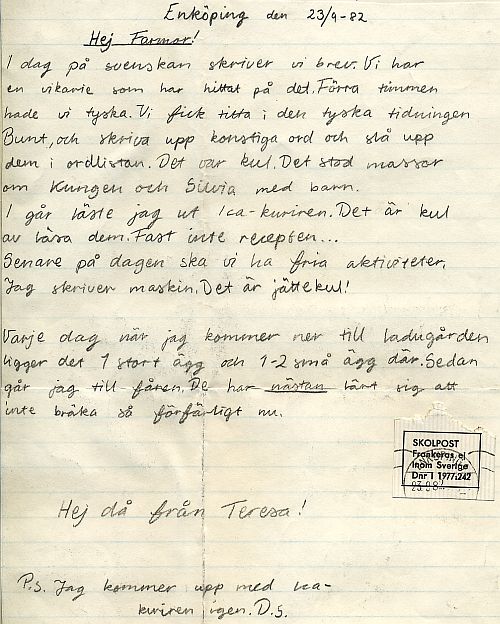 Enköping den 23/9-82
Hej Farmor!
I dag på svenskan skriver vi brev. Vi har
en vikarie som har hittat på det. Förra timmen
hade vi tyska. Vi fick titta i den tyska tidningen
Bunt, och skriva upp konstiga ord och slå upp
dem i ordlistan. Det var kul. Det stod massor
om Kungen och Silvia med barn.
I går läste jag ut Ica-kuriren. Det är kul
av läsa dem. Fast inte recepten...
Senare på dagen ska vi ha fria aktiviteter.
Jag skriver maskin. Det är jättekul!
Varje dag när jag kommer ner till ladugården
ligger det 1 stort ägg och 1-2 små ägg där. Sedan
går jag till fåren. De har nästan lärt sig att
inte bräka så förfärligt nu.
SKOLPOST
Frankeras ej
inom Sverige
Dnr I 1977:242
Hej då från Teresa!
P.S. Jag kommer upp med Ica-
kuriren igen. D.S.